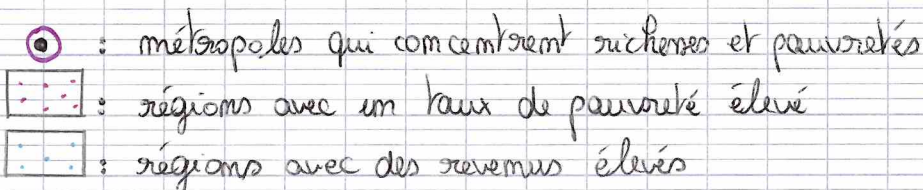 : métropoles qui concentrent richesses et pauvretés
: régions avec un taux de pauvreté élevé
: régions avec des revenus élevés